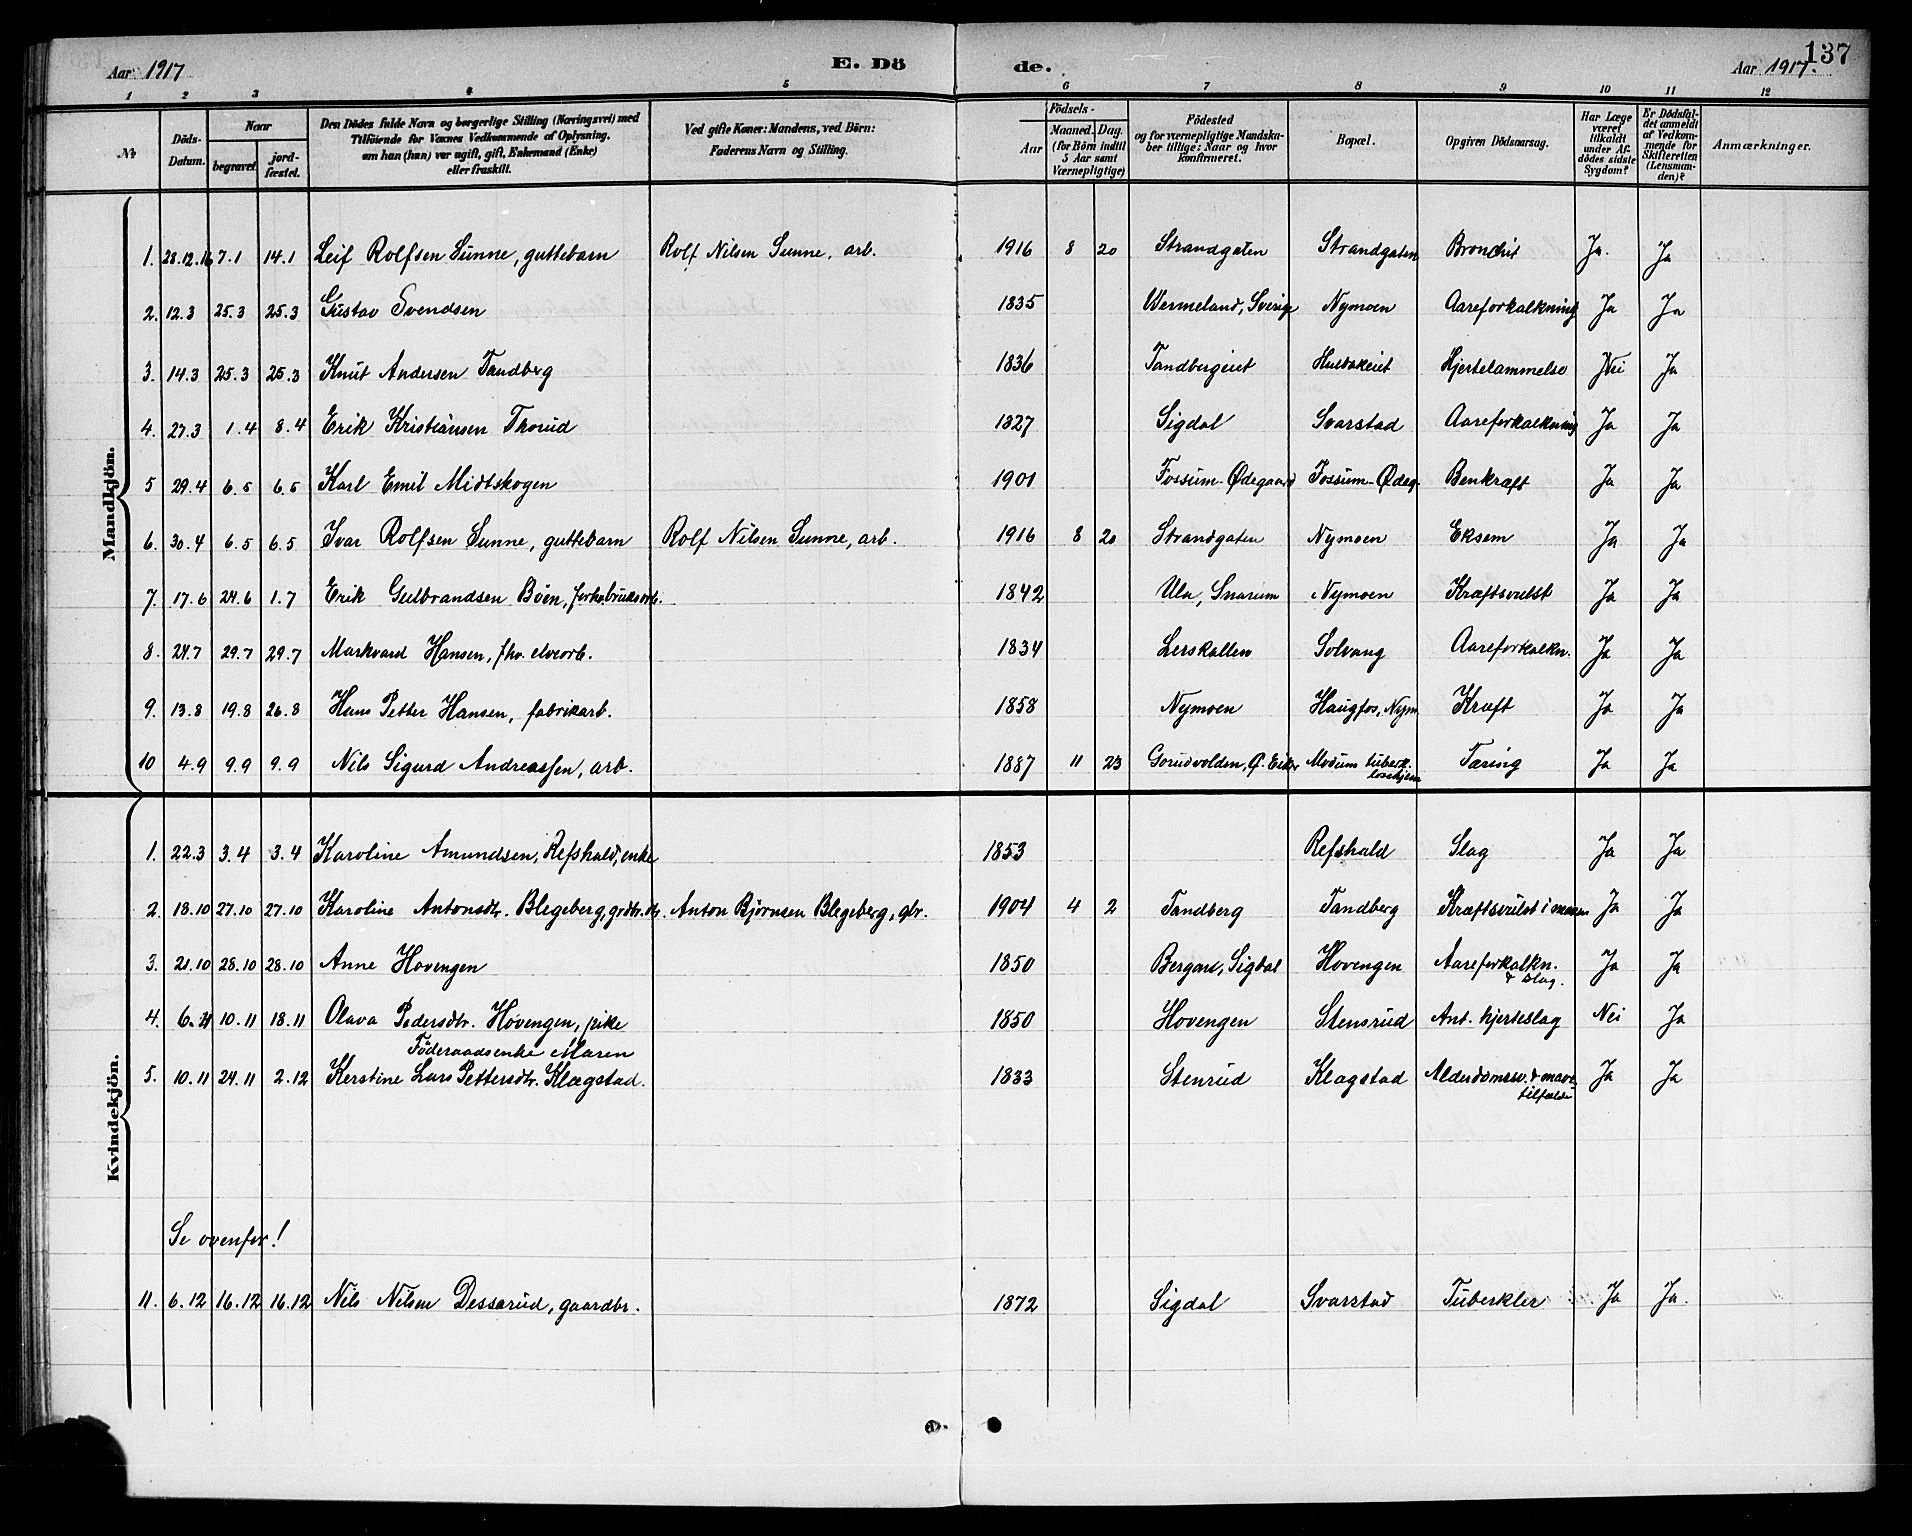 137
Aar 1917 E. Dö de. Aar 1917.
1 2 3 4 5 6 7 8 9 10 11 12
№ Döds-Datum. Naar begravet. jord-fæstet. Den Dödes fulde Navn og borgerlige Stilling (Næringsvei) med Tilföiende for Voxnes Vedkommende af Oplysning, om han (hun) var ugift, gift, Enkemand (Enke) eller fraskilt. Ved gifte Koner: Mandens, ved Börn: Faderens Navn og Stilling. Födsels- Aar Maaned. Dag. (for Börn indtil 5 Aar samt Værnepligtige) Födested og for værnepligtige Mandskaber tillige: Naar og hvor konfirmeret. Bopæl. Opgiven Dödsaarsag. Har Læge været tilkaldt under Afdödes sidste Sygdom? Er Dödsfaldet anmeldt af Vedkommende for Skifteretten (Lensmanden)? Anmærkninger.
Mandkjön.
1. 28.12.16 7.1 14.1 Leif Rolfsen Sunne, guttebarn Rolf Nilsen Sunne, arb. 1916 8 20 Strandgaten Strandgaten Bronchit Ja. Ja
2. 12.3 25.3 25.3 Gustav Svendsen 1835 Wermeland, Sverige Nymoen Aareforkalkning Ja Ja
3. 14.3 25.3 25.3 Knut Andersen Tandberg 1836 Tandbergeiet Hjertelammelse Nei Ja
4. 27.3 1.4 8.4 Erik Kristiansen Thorud 1827 Sigdal Svarstad Aareforkalkning Ja Ja
5 29.4 6.5 6.5 Karl Emil Midtskogen 1901 Fossum-Ødegaard Fossum-Ødeg. Benkræft Ja Ja
6. 30.4 6.5 6.5 Ivar Rolfsen Sunne, guttebarn Rolf Nilsen Sunne, arb. 1916 8 20 Strandgaten Nymoen Eksem Ja Ja
7. 17.6 24.6 1.7 Erik Gulbrandsen Böen, forhv. bruksarb. 1842 Ula, Snarum Nymoen Kræftsvulst Ja Ja
8. 24.7 29.7 29.7 Markvard Hansen, fhv. elvearb. 1834 Lerskallen Solvang Aareforkalkn. Ja Ja
9. 13.8 19.8 26.8 Hans Petter Hansen, fabrikarb. 1858 Nymoen Haugfos, Nym. Kræft Ja Ja
10 4.9 9.9 9.9 Nils Sigurd Andreassen, arb. 1887 11 23 Gorudvolden, Ø. Eiker Modum tuberk.losehjem Tæring Ja Ja
Kvindekjön.
1. 22.3 3.4 3.4 Karoline Amundsen, Refshald, enke 1853 Refshald Slag Ja Ja
2. 18.10 27.10 27.10 Karoline Antonsdtr. Blegeberg, grdbr. dtr. Anton Bjørnsen Blegeberg, gbr. 1904 4 2 Tandberg Tandberg Kræftsvulst i maven Ja Ja
3. 21.10 28.10 28.10 Anne Hovengen 1850 Bergan, Sigdal Hovengen Aareforkalkn. & Slag. Ja Ja
4. 6.11 10.11 18.11 Olava Pedersdtr. Hovengen, pike 1850 Hovengen Stensrud Ant. hjerteslag Nei Ja
Föderaadsenke Maren
5. 10.11 24.11 2.12 Kerstine Lars Pettersdtr. Klægstad. 1833 Stenrud Klægstad Alderdomssv. & mavetilfælde Ja Ja
Se ovenfor!
11. 6.12 16.12 16.12 Nils Nilsen Dessarud, gaardbr. 1872 Sigdal Svarstad Tuberkler Ja Ja.